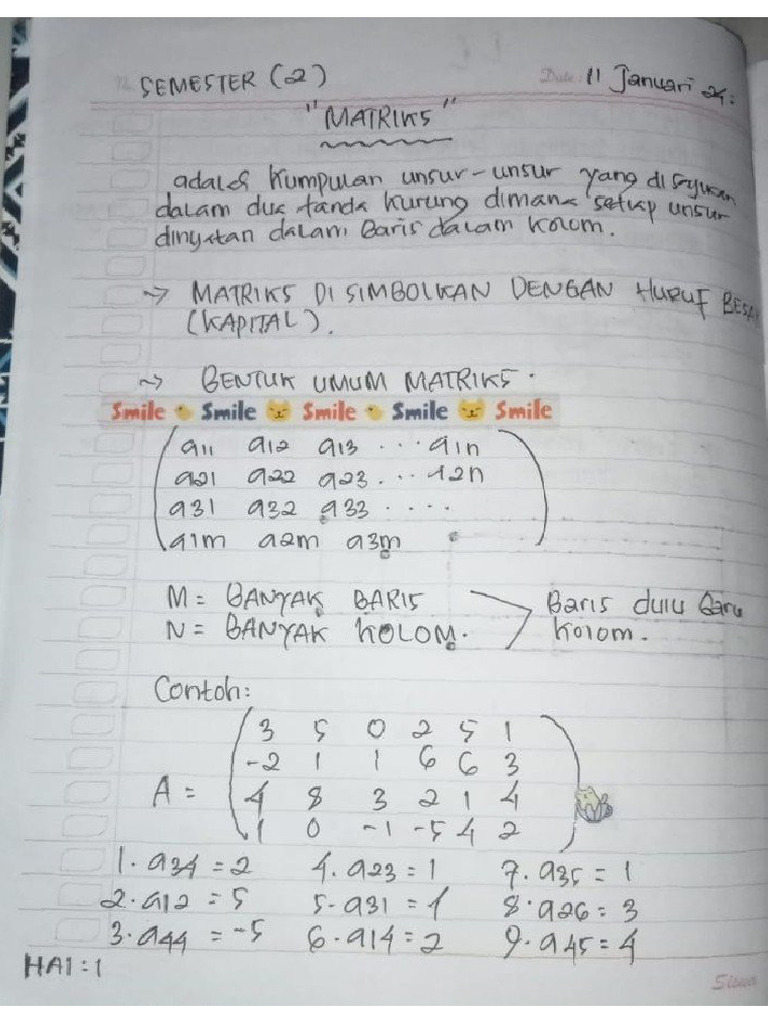 SEMESTER (2)
Date: 11 Januari 24.
"MATRIKS"
adalah kumpulan unsur-unsur yang di sajikan
dalam dua tanda kurung dimana setiap unsur
dinyatan dalam Baris dalam kolom.
→ MATRIKS DI SIMBOLKAN DENGAN HURUF BESAR
(KAPITAL).
→ BENTUK UMUM MATRIKS.
Smile Smile Smile Smile Smile
a11 a12 a13 ... a1n
a21 a22 a23 ... a2n
a31 a32 a33 ....
a1m a2m a3m
M = BANYAK BARIS
N = BANYAK KOLOM.
Baris dulu Baru
kolom.
Contoh:
3 5 0 2 5 1
-2 1 1 6 6 3
A = 4 8 3 2 1 4
1 0 -1 -5 4 2
1. a34 = 2 4. a23 = 1 7. a35 = 1
2. a12 = 5 5. a31 = 4 8. a26 = 3
3. a44 = -5 6. a14 = 2 9. a45 = 4
HAL : 1